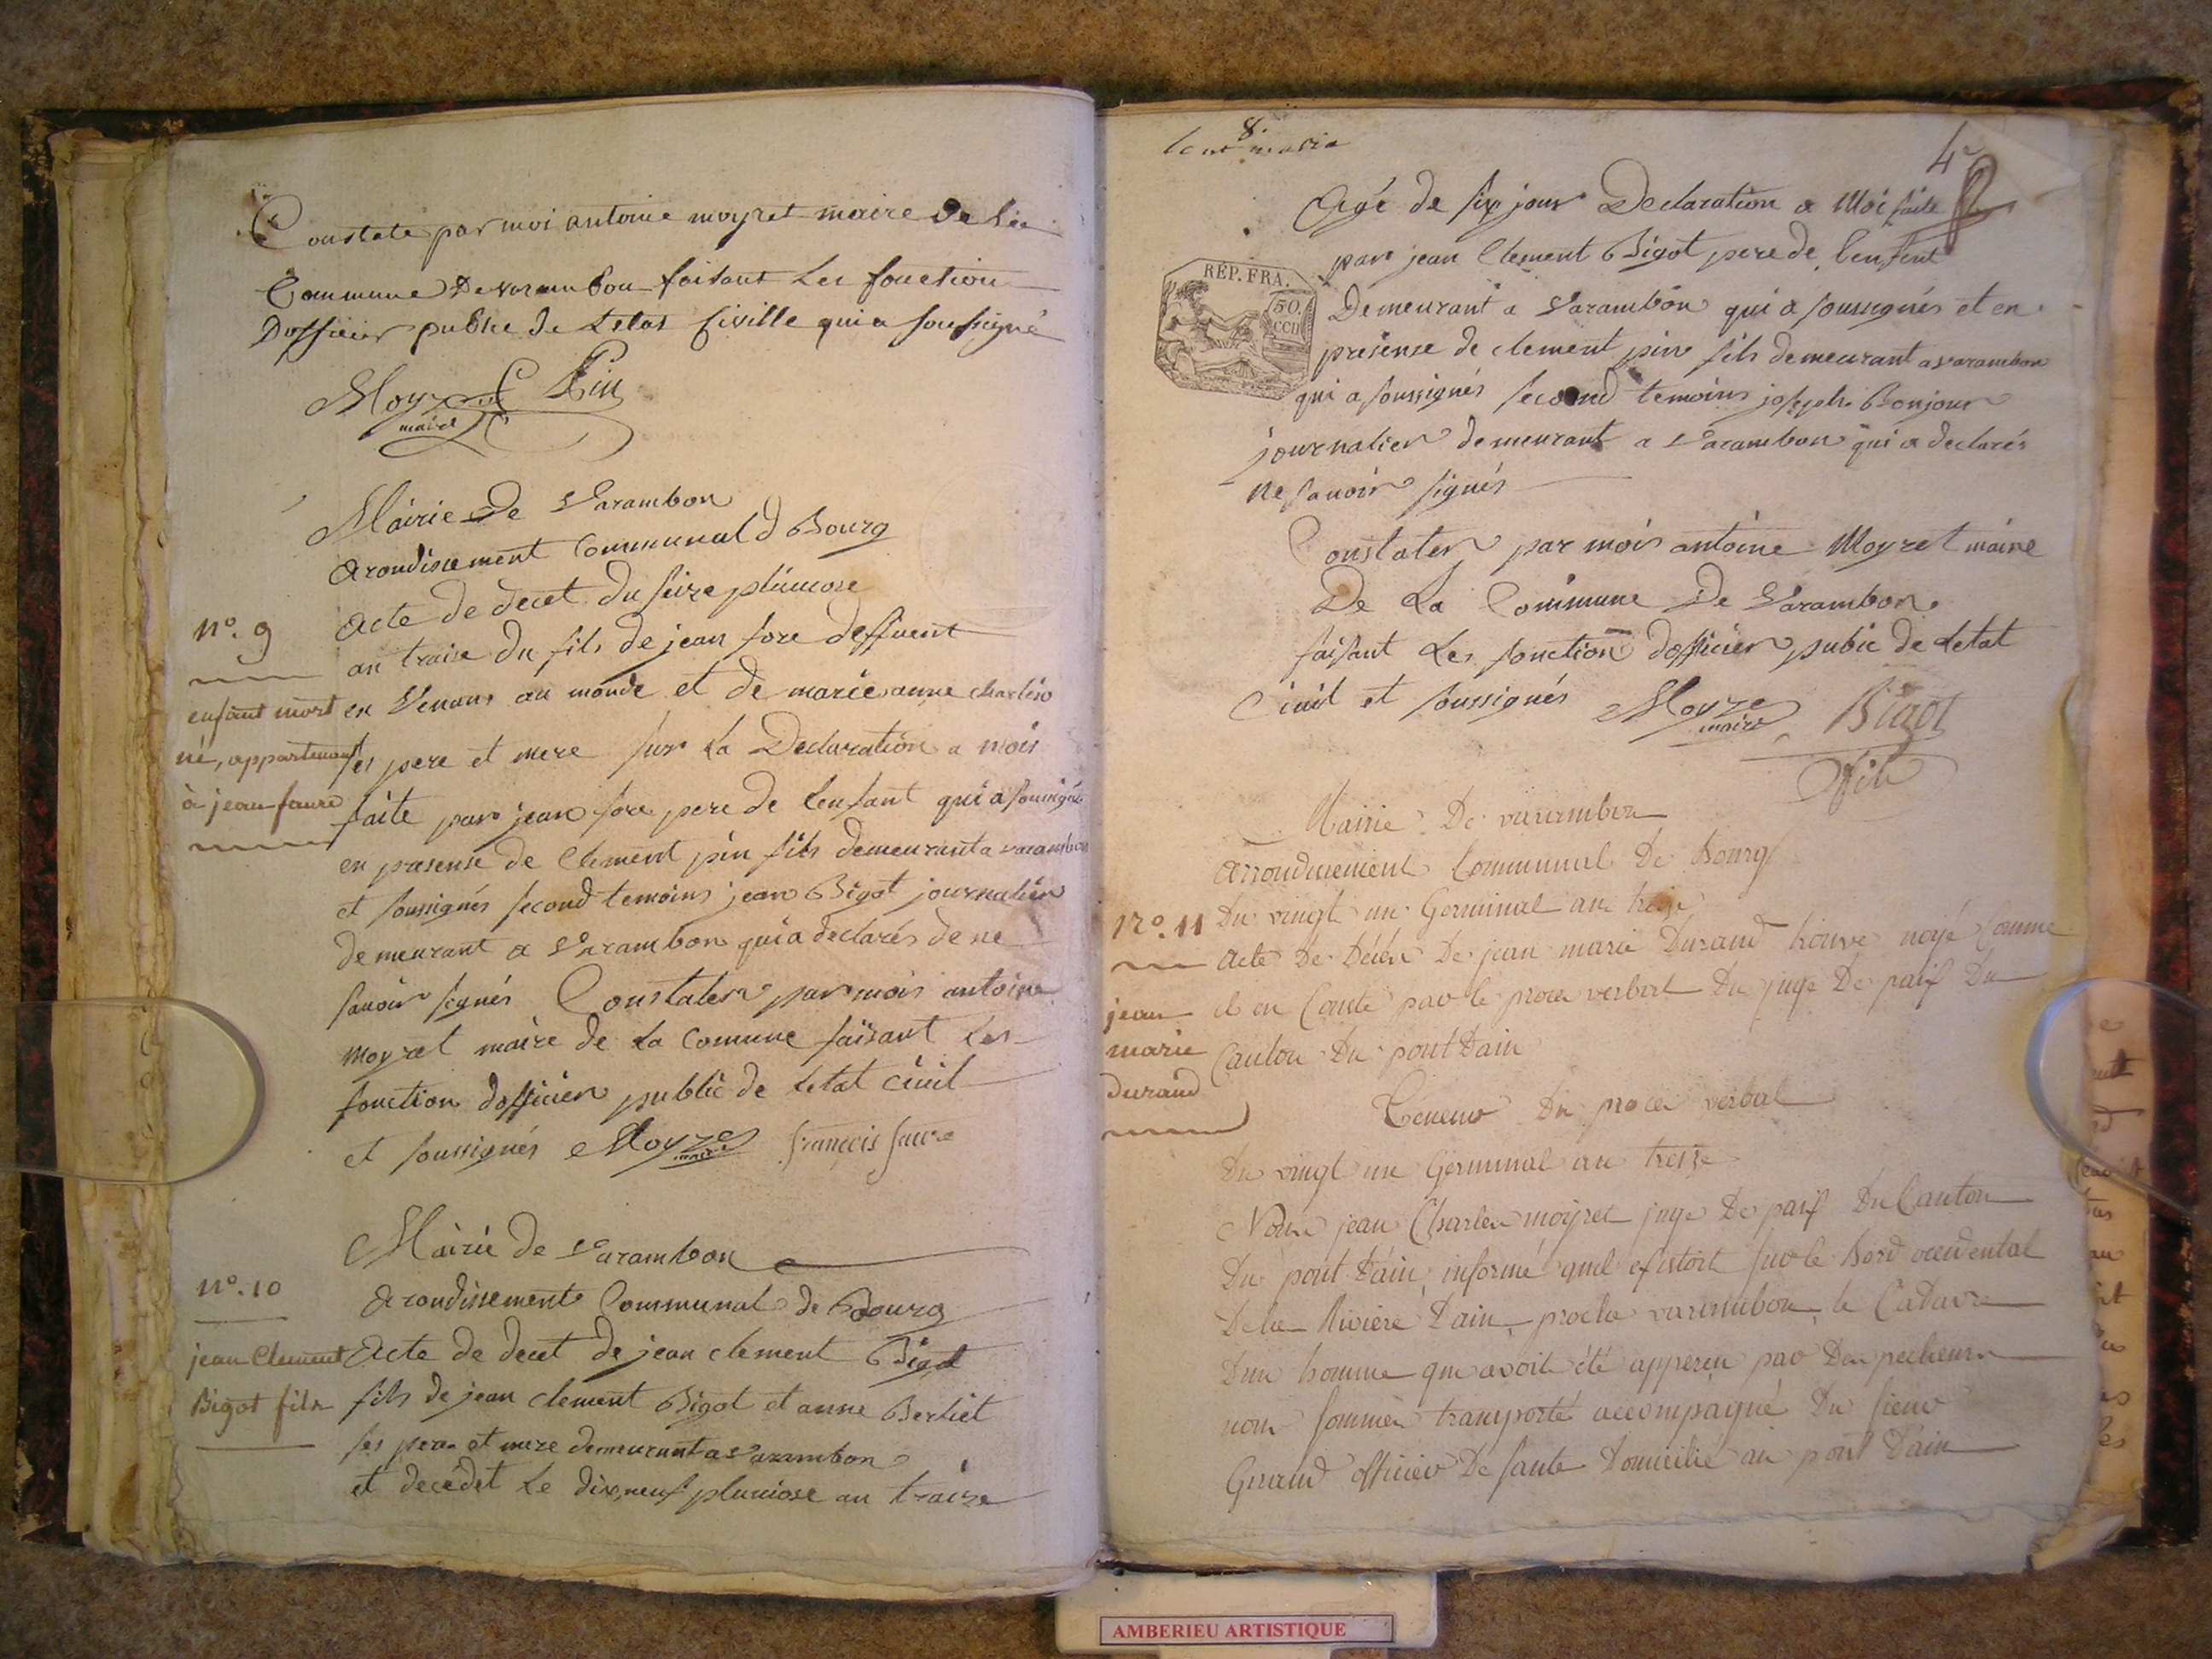 Constate par moi antoine moyret maire de la
Commune De varambon faisant Les fonction
Dofficier public de Letat Civille qui a sousigné
Moyret Pin
maire
Mairie De Varambon
Arondissement Communal d Bourg
Acte de decet du seize pluviose
nº. 9
an traise du fils de jean fore deffuent
enfant mort
né, appartenant
à jean faure
en Venant au monde et de marie anne charles
ses pere et mere sur La Declaration a mois
faite par jean fore pere de Lenfant qui a sousignés
en presense de Clement pin fils demeurant a varambon
et soussignés second temoins jean Bigot journalier
demeurant a Varambon qui a declarés de ne
savoir signés Constater par mois antoine
moyret maire de La Comune faisant Les
fonction dofficier public de Letat Civil
et soussignés Moyret françois faure
maire
Mairie de Varambon
nº. 10
Arondissement Communal de Bourg
jean Clement
Bigot fils
Acte de decet de jean clement Bigot
fils de jean clement Bigot et anne Berliet
ses pere et mere demeurant a Varambon
et decédet Le dix neuf pluviose an traize
8.
4e
Agé de six jour Declaration a Moi faite
par jean Clement Bigot pere de Lenfent
RÉP. FRA.
50.
CEN
Demeurant a Varambon qui a soussignés et en
presense de clement pin fils demeurant a varambon
qui a soussignés second temoins joseph Bonjour
journalier demeurant a Varambon qui a declarés
ne savoir signés
Constater par mois antoine Moyret maire
De La Commune De Varambon
faisant Les fonction dofficier pubic de Letat
Civil et soussignés Moyret Bigot
maire
fils
Mairie De varambon
Arrondissement Communal De Bourg
Nº. 11
Du vingt un Germinal an treize
jean
marie
durand
Acte De Décès De jean marie Durand trouvé noyé Comme
il en Conste par le procès verbal Du juge De paix Du
Canton Du pont Dain
Teneur Du procès verbal
Du vingt un Germinal an treize
Nous jean Charles moyret juge De paix Du Canton
Du pont Dain, informé quil existoit sur le Bord occidental
De la Riviere Dain, proche varambon, le Cadavre
Dun homme qui avoit été apperçu par Des pecheurs
nous sommes transporté accompagné Du sieur
Girard officier De santé Domicilié au pont Dain
AMBERIEU ARTISTIQUE